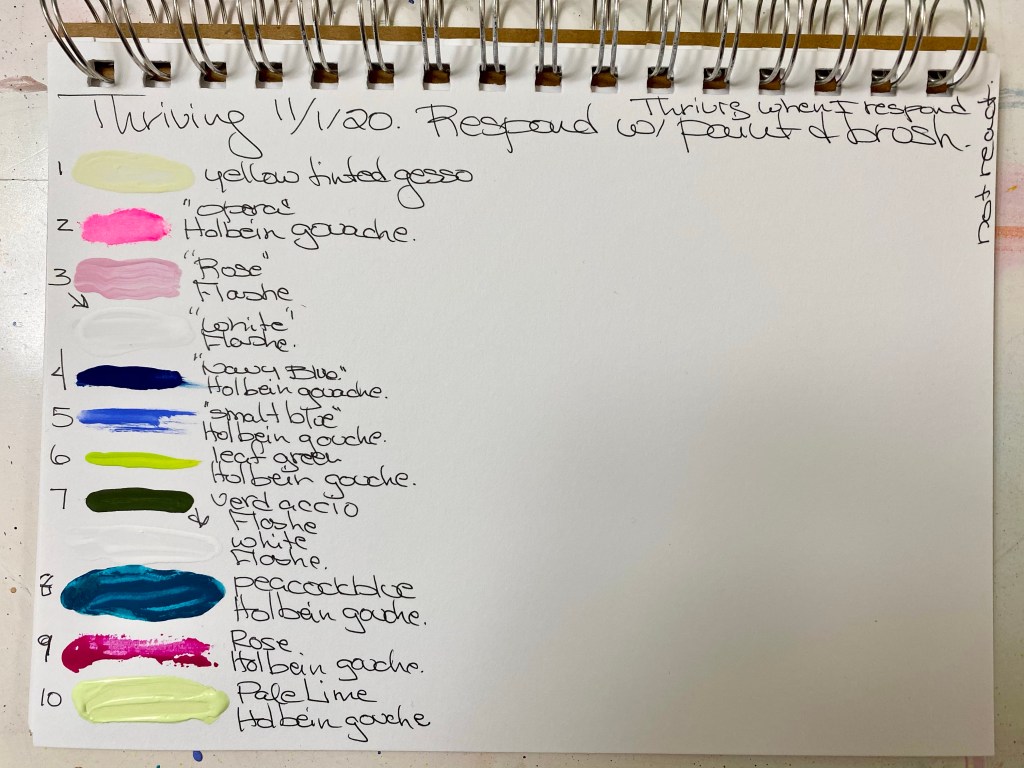 Thriving 11/1/20. Respond w/ paint & brush.
Thrives when I respond
not react.
1 yellow tinted gesso
2 "opera"
Holbein gouache.
3 "Rose"
Flashe
"white"
Flashe.
4 "Navy Blue"
Holbein gouache.
5 "smalt blue"
Holbein gouche.
6 leaf green
Holbein gouche.
7 verdaccio
Flashe
white
Flashe.
8 peacock blue
Holbein gouche.
9 Rose.
Holbein gouche.
10 Pale Lime
Holbein gouche